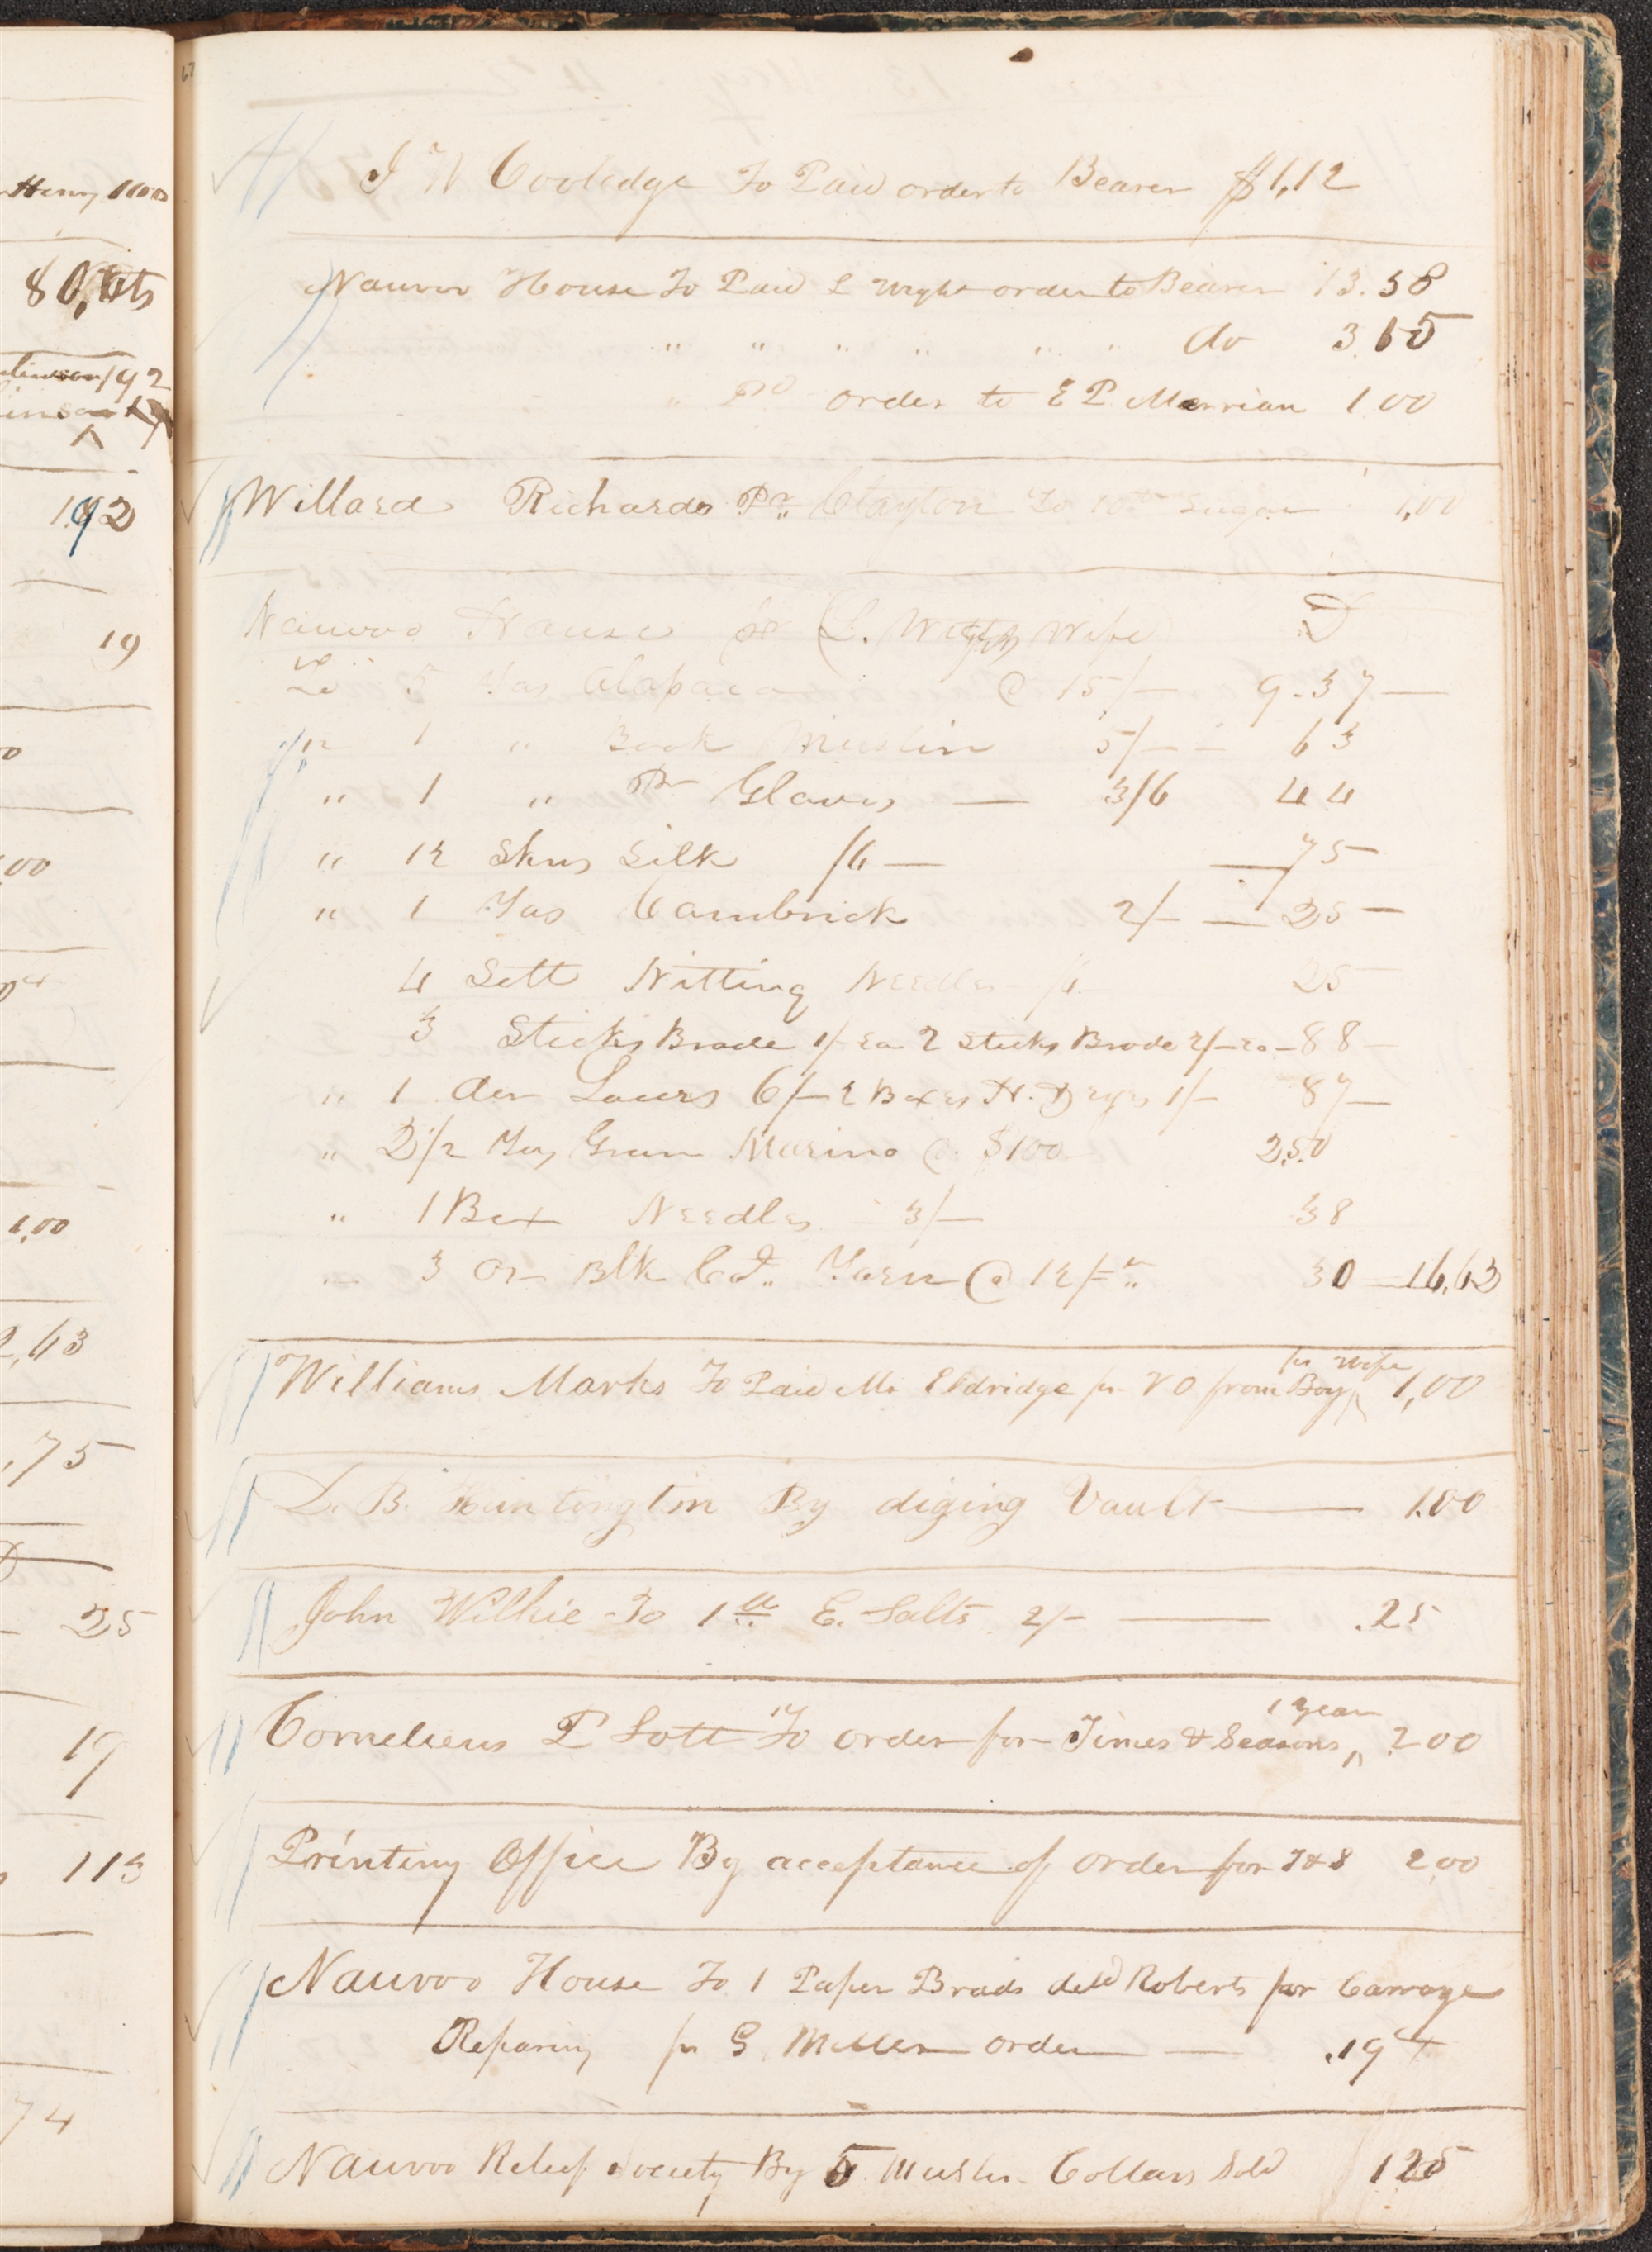 Henry 1100
80, cts
192
192
19
00
1,00
2,63
,75
25
19
113
74
67
J W Coolidge To Paid order to Bearer $1,12
Nauvoo House To Paid L Wight order to Bearer 13.58
" " " " " " do 3.65
" Pd order to E P Merriam 1 00
Willard Richards Pr Clayton To 10 lb Sugar 1,00
Nauvoo House pr (L. Wights Wife) D
To 5 Yds Alapaca @ 15/— 9-37—
" 1 " Book Muslin 5/— - 63
" 1 " Pr Gloves — 3/6 44
" 12 Skns Silk /6 — — 75
" 1 Yds Cambrick 2/— — 25 —
4 Sett Nitting Needles /4 25
3 Sticks Brade 1/- Ea 2 Sticks Brade 2/— ea — 88 —
" 1 doz Lacers 6/— 2 Boxes H. Dzyes 1/— 87—
" 2 1/2 Yds Green Marino @ $100 2,50
" 1 Box Needles - 3/— 38
" 3 Oz Blk Cd.. Yarn @ 12/— 30 — 16,63
Williams Marks To Paid Mr Eldridge pr V O from Boy ^ pr Wife 1,00
D. B. Huntington By diging Vault — 1.00
John Wilkie To 1 lb E. Salts 2/- — .25
Cornelieus P Lott To order for Times & Seasons ^ 1 year 2 00
Printing Office By acceptance of order for T & S 2,00
Nauvoo House To 1 Paper Brads deld Roberts for Carrage
Reparing pr G. Miller order — .19
Nauvoo Releif Society By 5 Muslin Collars Sold 125